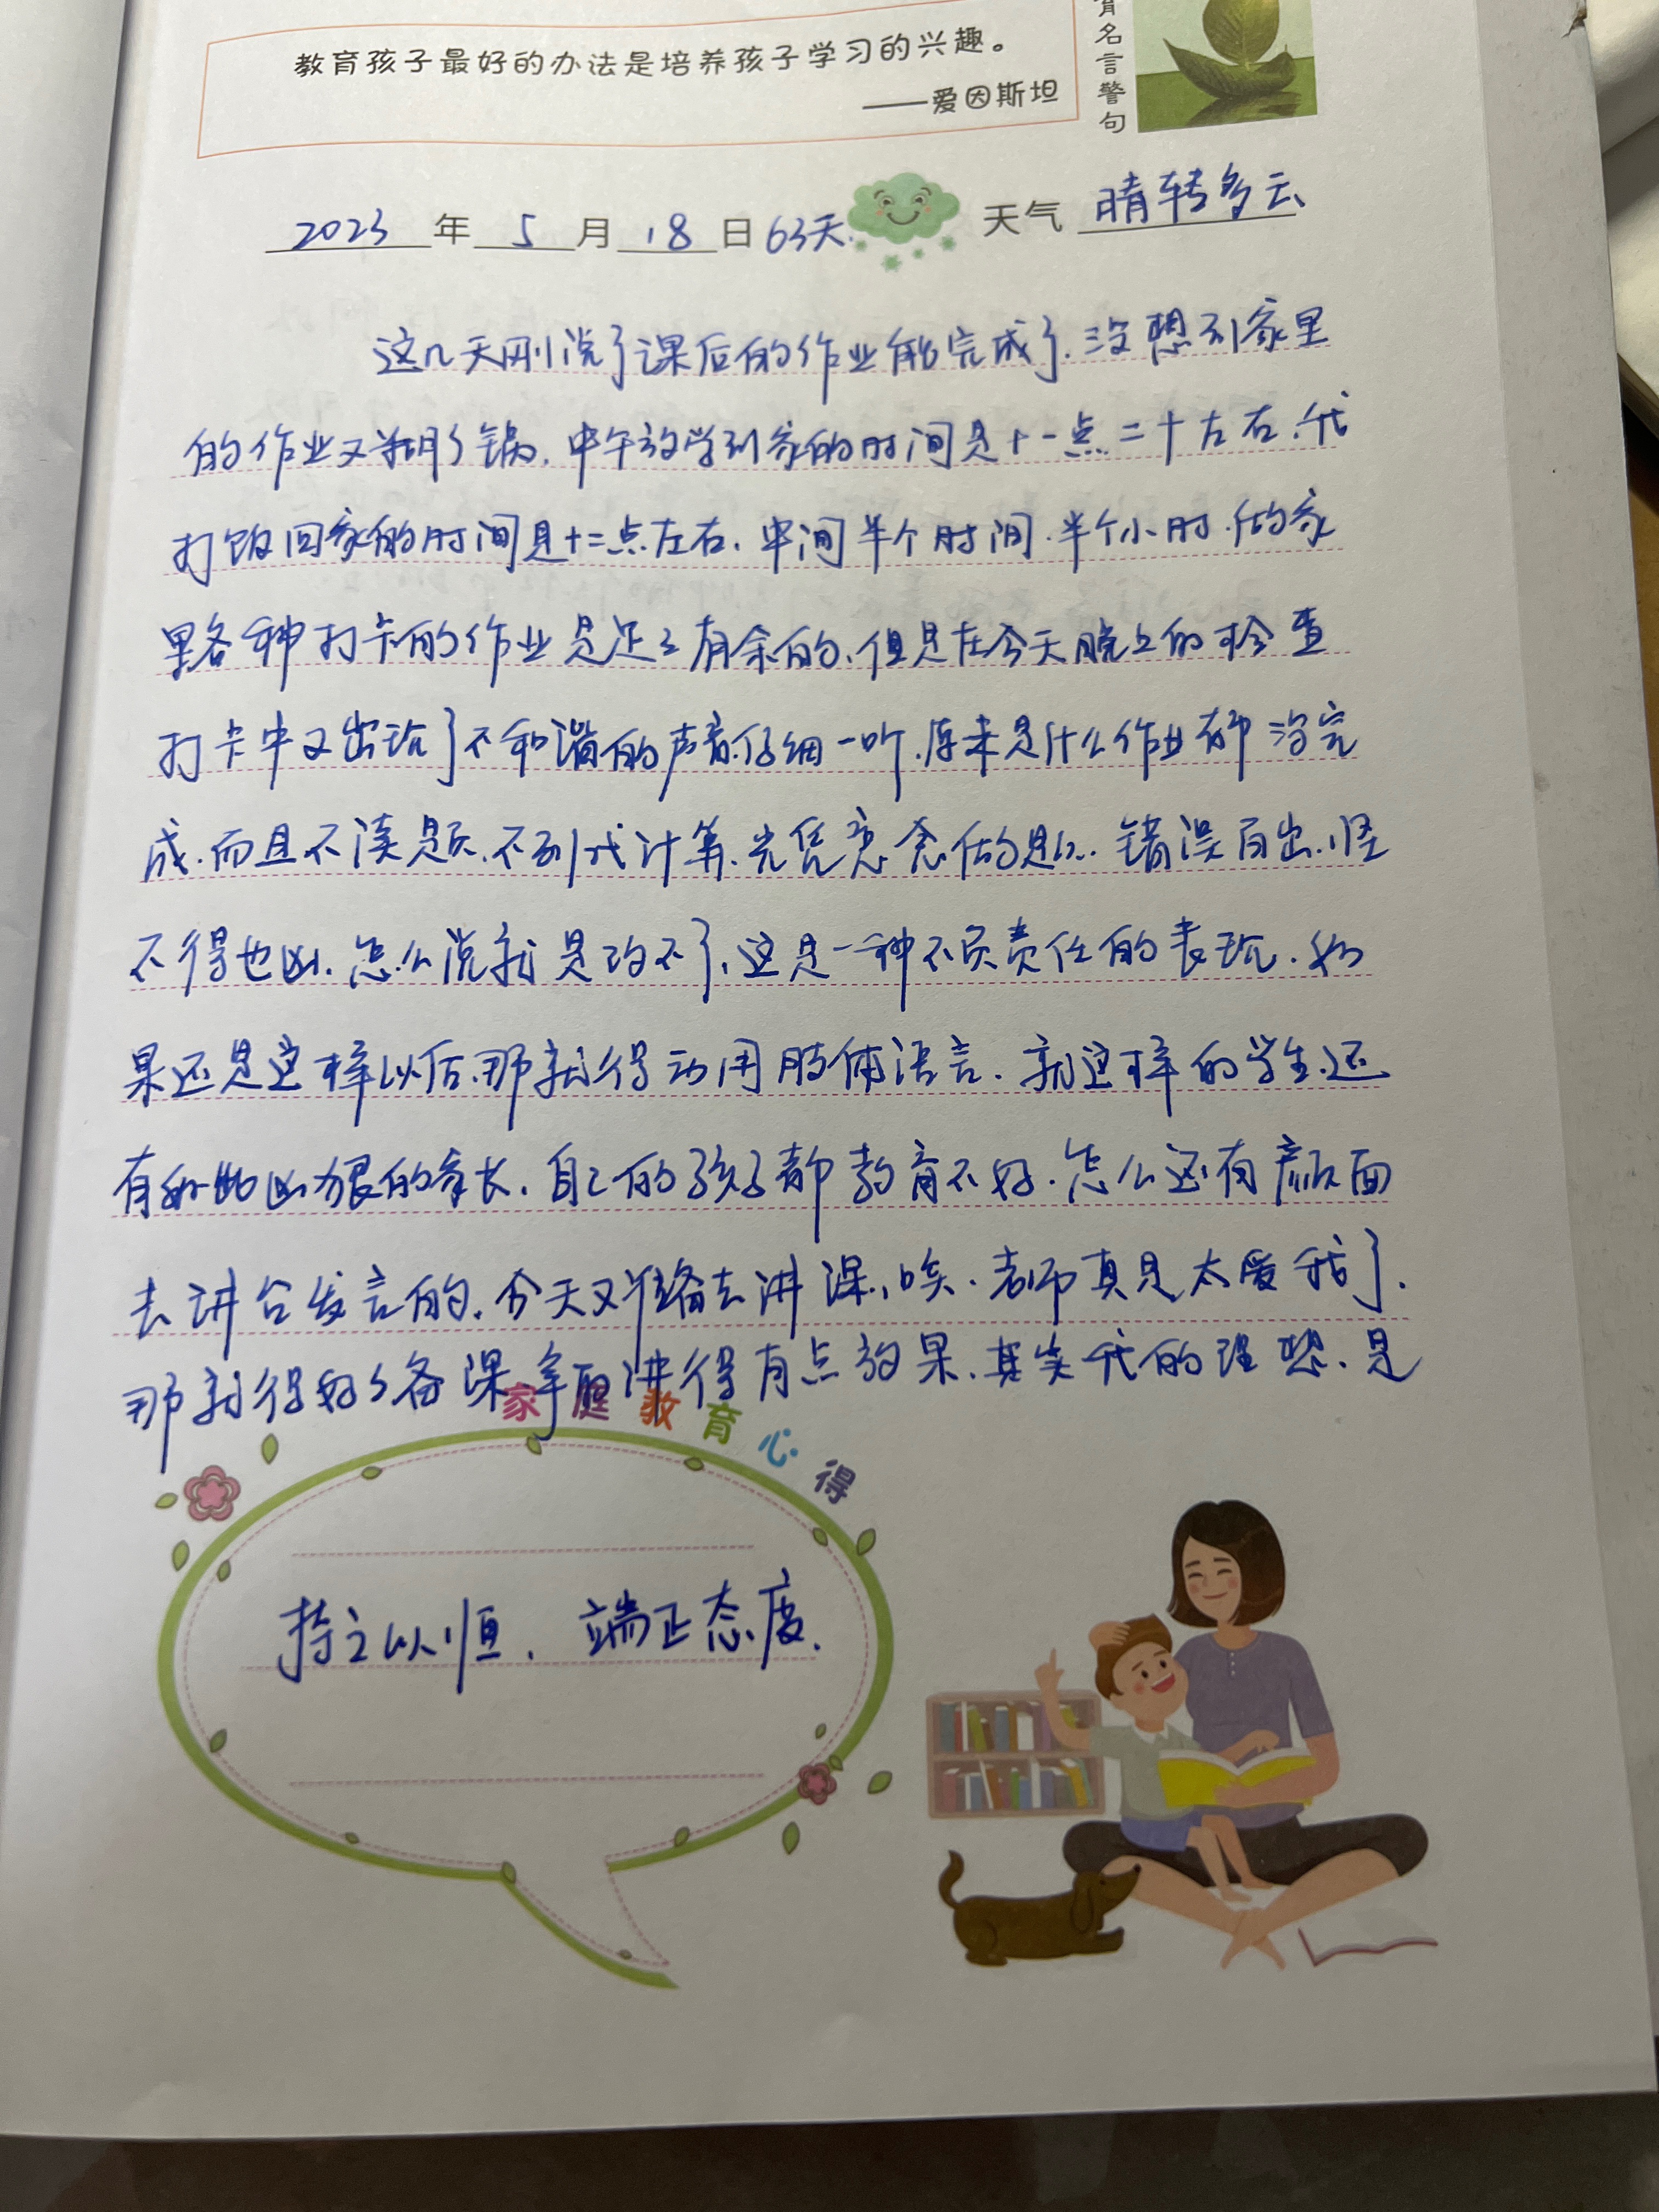 教育孩子最好的办法是培养孩子学习的兴趣。
——爱因斯坦
名言警句
2023年5月18日63天 天气 晴转多云
这几天刚说了课后的作业能完成了.没想到家里
的作业又糊了锅.中午放学到家的时间是十一点二十左右.我
打饭回家的时间是十二点左右.中间半个时间.半个小时.做家
里各种打卡的作业是足足有余的.但是在今天晚上的检查
打卡中又出现了不和谐的声音.仔细一听.原来是什么作业都没完
成.而且不读题.不列式计算.光凭意念做的题.错误百出.怪
不得也凶.怎么说就是改不了.这是一种不负责任的表现.如
果还是这样以后.那就得动用肢体语言.就这样的学生.还
有如此凶狠的家长.自己的孩子都教育不好.怎么还有颜面
去讲台发言的.今天又准备去讲课.唉.老师真是太爱我了.
那就得好好备课.争取讲得有点效果.其实我的理想.是
家庭教育心得
持之以恒.端正态度.